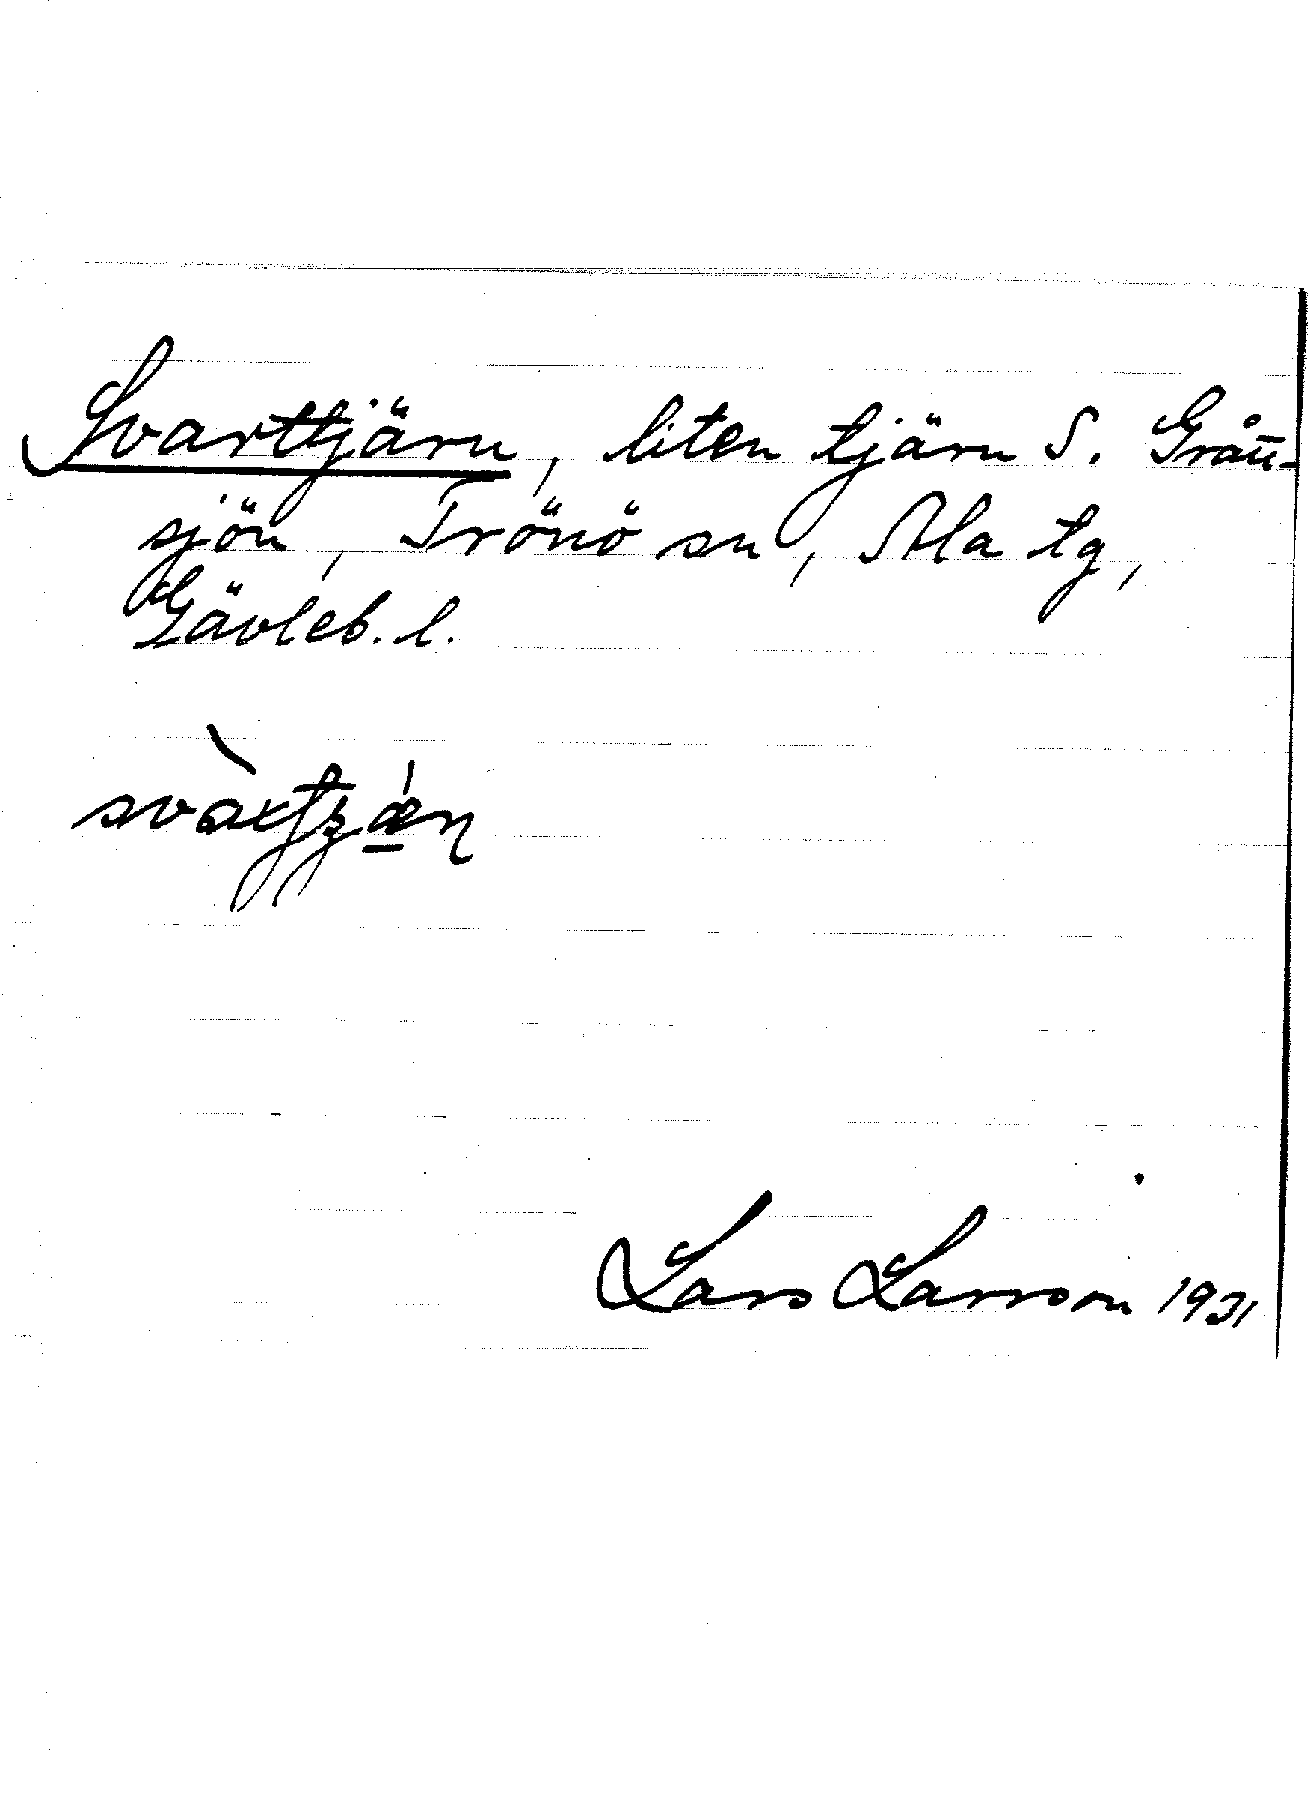 Svarttjärn, liten tjärn S. Grån-
sjön, Trönö sn, Ala tg,
Gävleb. l.
Lars Larsson 1931